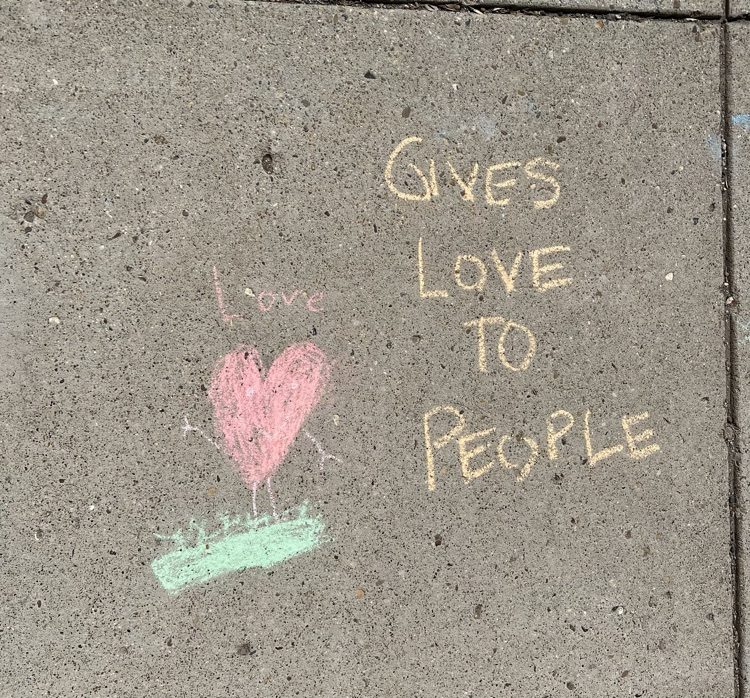 Love
GIVES
LOVE
TO
PEOPLE